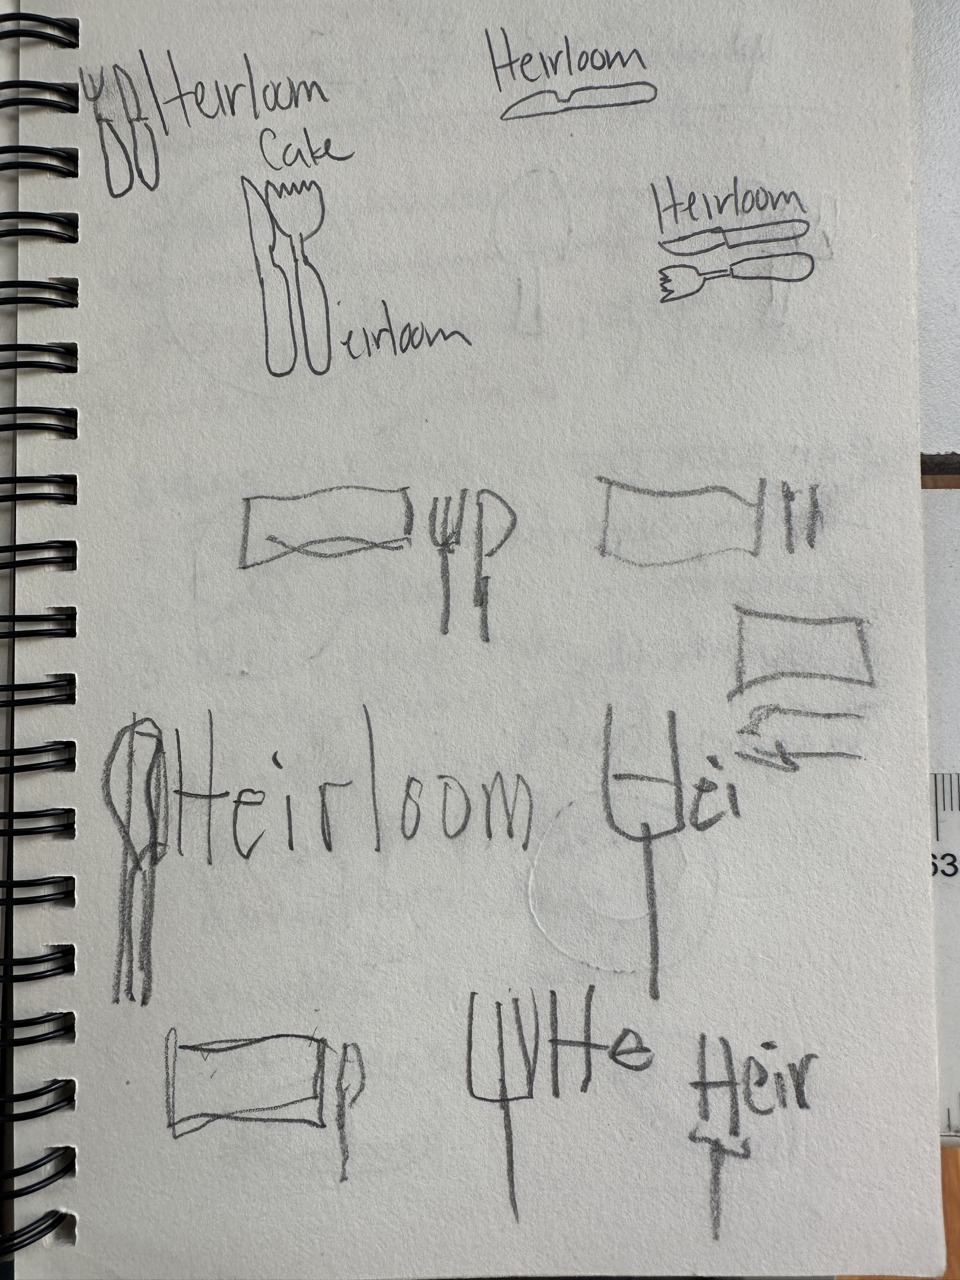 Heirloom
Heirloom
Cake
Heirloom
eirloom
Heirloom
Hei
He
Heir
63